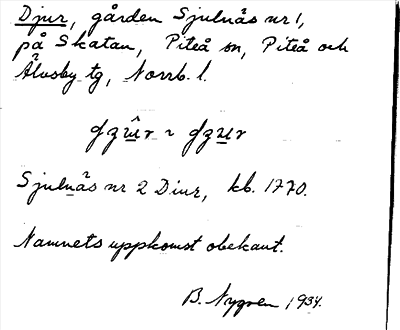 Djur, gården Sjulnäs nr 1,
på Skatan, Piteå sn, Piteå och
Älvsby tg, Norrb. l.
Sjulnäs nr 2 Diur, kb. 1770.
Namnets uppkomst obekant.
B. Nygren 1934.